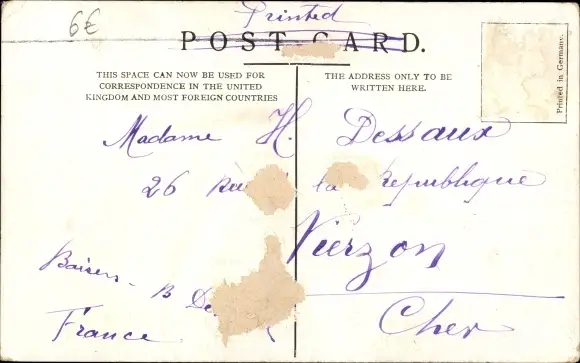 6€
Printed
POST CARD.
Printed in Germany.
THIS SPACE CAN NOW BE USED FOR
CORRESPONDENCE IN THE UNITED
KINGDOM AND MOST FOREIGN COUNTRIES
THE ADDRESS ONLY TO BE
WRITTEN HERE.
Madame H. Dessaux
26 la République
Vierzon
Cher
Baisers - B
France